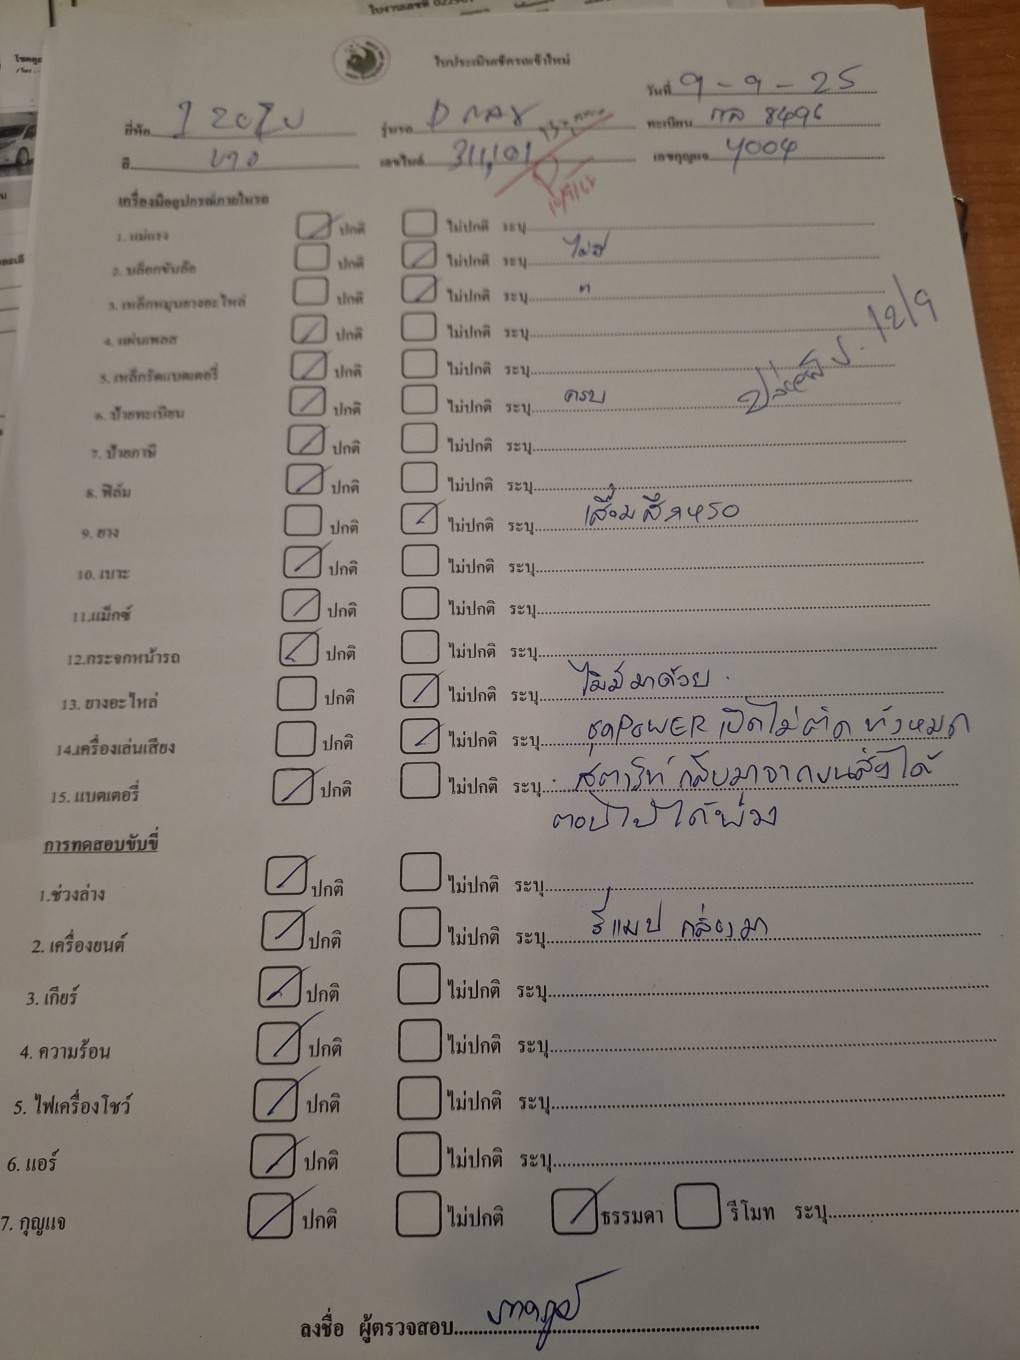 ใบประเมินเช็ครถเข้าใหม่
วันที่ 9-9-25
ยี่ห้อ รุ่นรถ D max ทะเบียน 8496
สี ขาว เลขไมล์ 311,101 เลขกุญแจ Y004
เครื่องมืออุปกรณ์ภายในรถ
1. แม่แรง ปกติ ไม่ปกติ ระบุ
2. บล็อกขันล้อ ปกติ ไม่ปกติ ระบุ ไม่มี
3. เหล็กหมุนยางอะไหล่ ปกติ ไม่ปกติ ระบุ "
4. แผ่นเพลส ปกติ ไม่ปกติ ระบุ
12/9
5. เหล็กรัดแบตเตอรี่ ปกติ ไม่ปกติ ระบุ
6. ป้ายทะเบียน ปกติ ไม่ปกติ ระบุ ครบ
7. ป้ายภาษี ปกติ ไม่ปกติ ระบุ
8. ฟิล์ม ปกติ ไม่ปกติ ระบุ
9. ยาง ปกติ ไม่ปกติ ระบุ เสื่อมสึกหรอ
10. เบาะ ปกติ ไม่ปกติ ระบุ
11.แม็กซ์ ปกติ ไม่ปกติ ระบุ
12.กระจกหน้ารถ ปกติ ไม่ปกติ ระบุ
13. ยางอะไหล่ ปกติ ไม่ปกติ ระบุ ไม่มีมาด้วย
14.เครื่องเล่นเสียง ปกติ ไม่ปกติ ระบุ ชุดPOWER เปิดไม่ติด ทั้งหมด
15. แบตเตอรี่ ปกติ ไม่ปกติ ระบุ สตาร์ท กลับมาจากขนส่งได้
ตอนไปได้พ่วง
การทดสอบขับขี่
1.ช่วงล่าง ปกติ ไม่ปกติ ระบุ
2. เครื่องยนต์ ปกติ ไม่ปกติ ระบุ รีแมป กล่องมา
3. เกียร์ ปกติ ไม่ปกติ ระบุ
4. ความร้อน ปกติ ไม่ปกติ ระบุ
5. ไฟเครื่องโชว์ ปกติ ไม่ปกติ ระบุ
6. แอร์ ปกติ ไม่ปกติ ระบุ
7. กุญแจ ปกติ ไม่ปกติ ธรรมดา รีโมท ระบุ
ลงชื่อ ผู้ตรวจสอบ